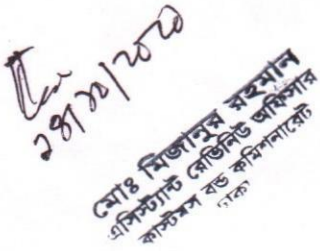 ২৪/১১/২০২০
মোঃ মিজানুর রহমান
এসিস্ট্যান্ট রেভিনিউ অফিসার
কাস্টমস বন্ড কমিশনারেট
ঢাকা